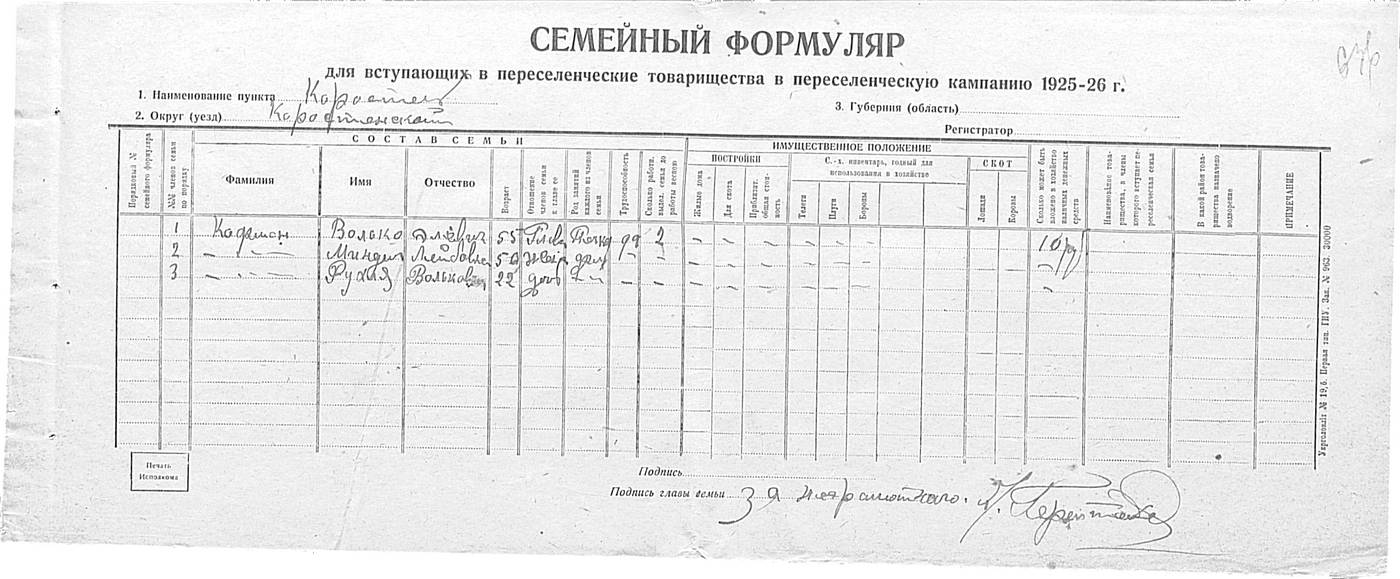 СЕМЕЙНЫЙ ФОРМУЛЯР
для вступающих в переселенческие товарищества в переселенческую кампанию 1925-26 г.
1. Наименование пункта Коростень
3. Губерния (область)
2. Округ (уезд) Коростенский
Регистратор
СОСТАВ СЕМЬИ
ИМУЩЕСТВЕННОЕ ПОЛОЖЕНИЕ
Порядковый № семейного формуляра
№№ членов семьи по порядку
Фамилия
Имя
Отчество
Возраст
Отношение членов семьи к главе ее
Род занятий каждого из членов семьи
Трудоспособность
Сколько работн. выдел. семья до работы весною
ПОСТРОЙКИ
Жилые дома
Для скота
Приблизит. общая стоимость
С.-х. инвентарь, годный для использования в хозяйстве
Телеги
Плуги
Бороны
СКОТ
Лошади
Коровы
Сколько может быть вложено в хозяйство наличных денежных средств
Наименование товарищества, в члены которого вступает переселенческая семья
В какой район товарищества назначено водворение
ПРИМЕЧАНИЕ
1 Кофман Волько 55 2 – – – – – – – –
2 – – – 50 – – – – – – – – –
3 – – – Рухля 22 – – – – – – – – – –
Печать Исполкома
Подпись
Подпись главы семьи За неграмотного.
Укрголовліт № 19,6. Первая тип. ГИУ. Зак. № 963. 30000